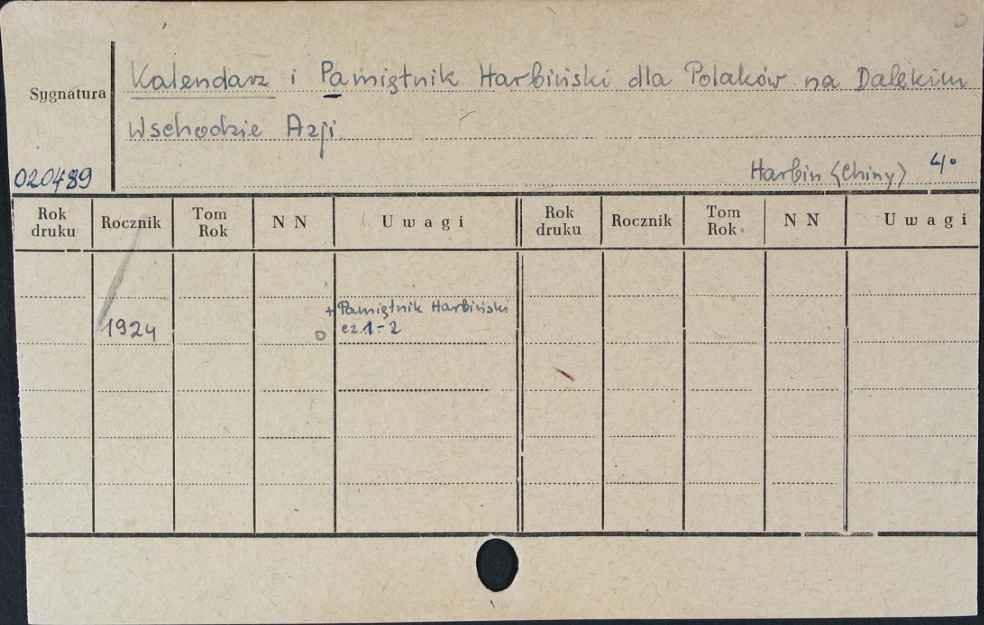 Kalendarz i Pamiętnik Harbiński dla Polaków na Dalekim
Sygnatura
Wschodzie Azji
020489
Harbin (Chiny) 4°
Rok druku Rocznik Tom Rok N N Uwagi Rok druku Rocznik Tom Rok N N Uwagi
+ Pamiętnik Harbiński
1924 cz 1-2